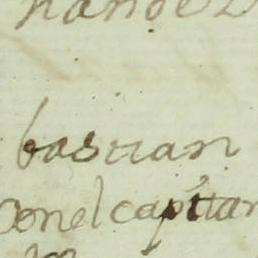 nandez
bastian
conel capitan